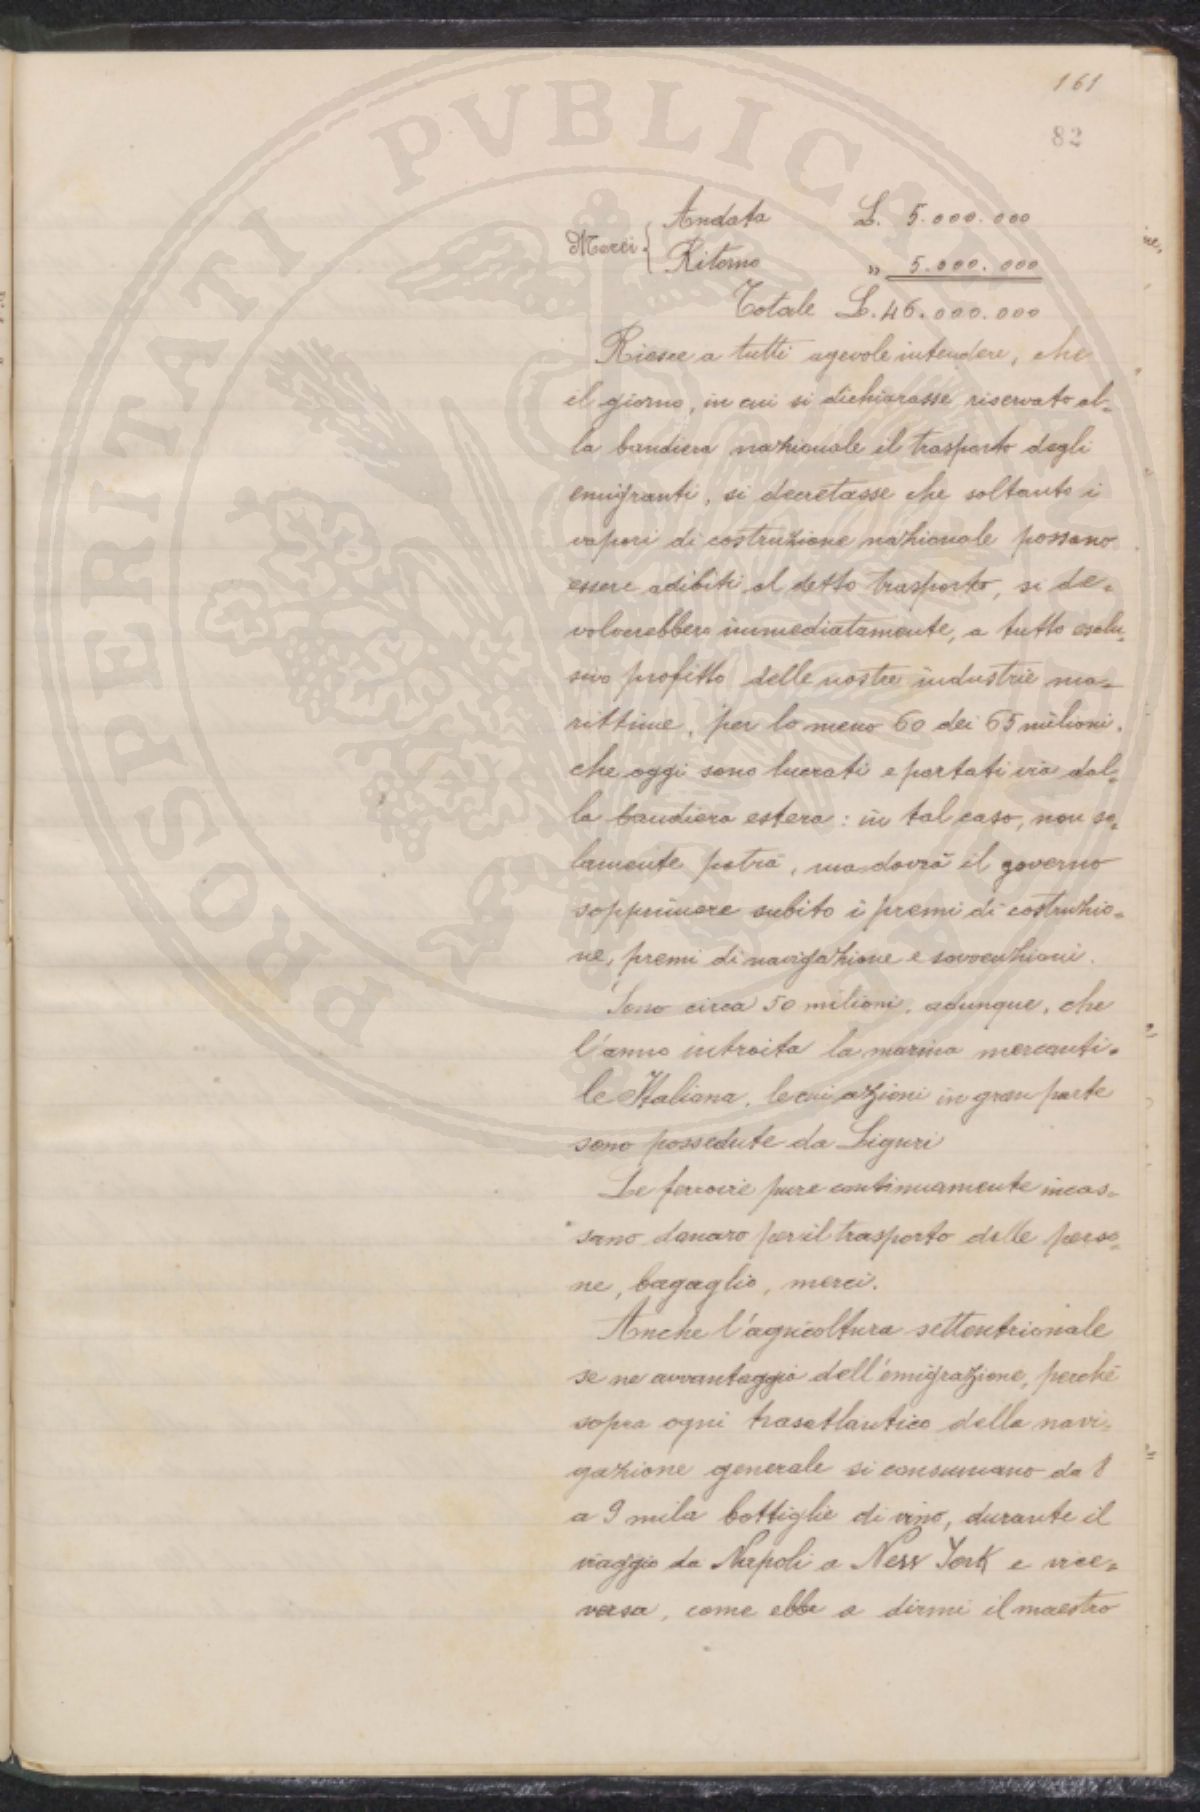 161
82
PROSPERITATI PVBLICAE
Andata L. 5.000.000
Merci
Ritorno " 5.000.000
Totale L. 46.000.000
Riesce a tutti agevole intendere, che
il giorno, in cui si dichiarasse riservato al-
la bandiera nazionale il trasporto degli
emigranti, si decretasse che soltanto i
vapori di costruzione nazionale possano
essere adibiti al detto trasporto, si de-
volverebbero immediatamente, a tutto esclu-
sivo profitto delle nostre industrie ma-
rittime, per lo meno 60 dei 65 milioni,
che oggi sono lucrati e portati via dal-
la bandiera estera: in tal caso, non so-
lamente potrà, ma dovrà il governo
sopprimere subito i premi di costruzio-
ne, premi di navigazione e sovvenzioni.
Sono circa 50 milioni, adunque, che
l'anno introita la marina mercanti-
le Italiana, le cui azioni in gran parte
sono possedute da Liguri
Le ferrovie pure continuamente incas-
sano danaro per il trasporto delle perso-
ne, bagaglio, merci.
Anche l'agricoltura settentrionale
se ne avvantaggia dell'emigrazione, perchè
sopra ogni trasatlantico della navi-
gazione generale si consumano da 8
a 9 mila bottiglie di vino, durante il
viaggio da Napoli a New York e vice-
versa, come ebbe a dirmi il maestro